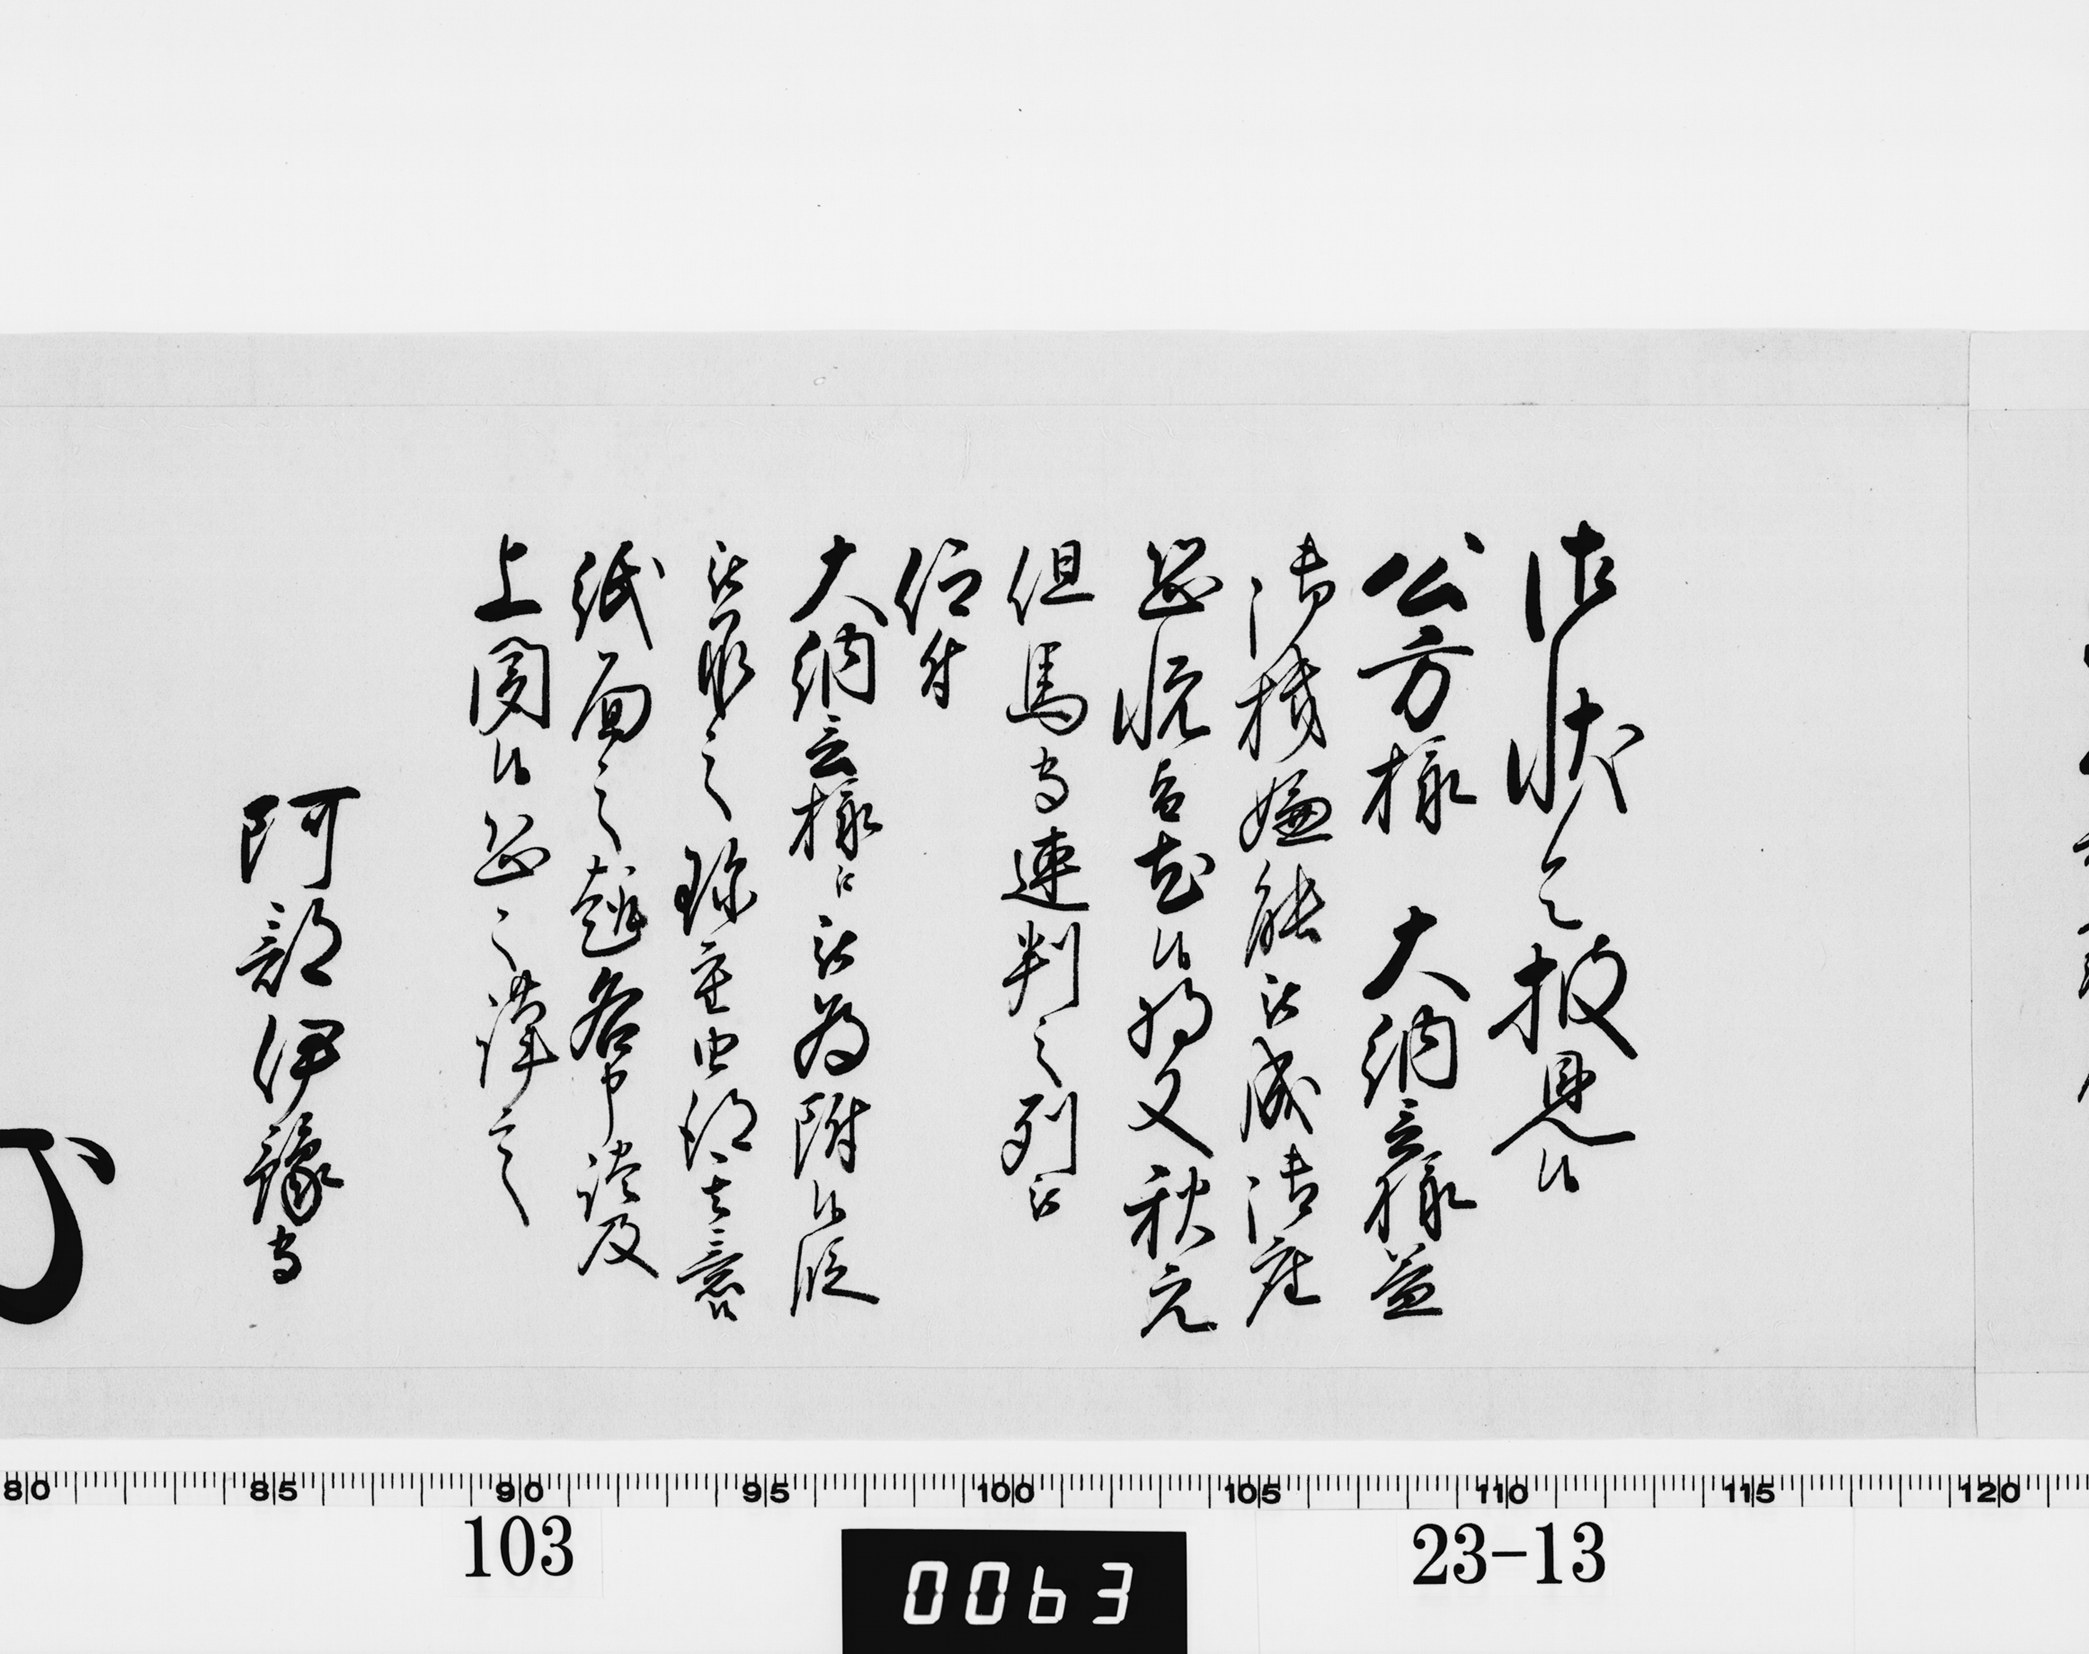 御状令披見候
公方様 大納言様益
御機嫌能被成御座
恐悦旨尤候将又秋元
但馬守連判之列被
仰付
大納言様江被為附候段
被承之珍重由得其意候
紙面之趣各申談及
上聞候恐々謹言
阿部伊豫守
80 85 90 95 100 105 110 115 120
103
0063
23-13